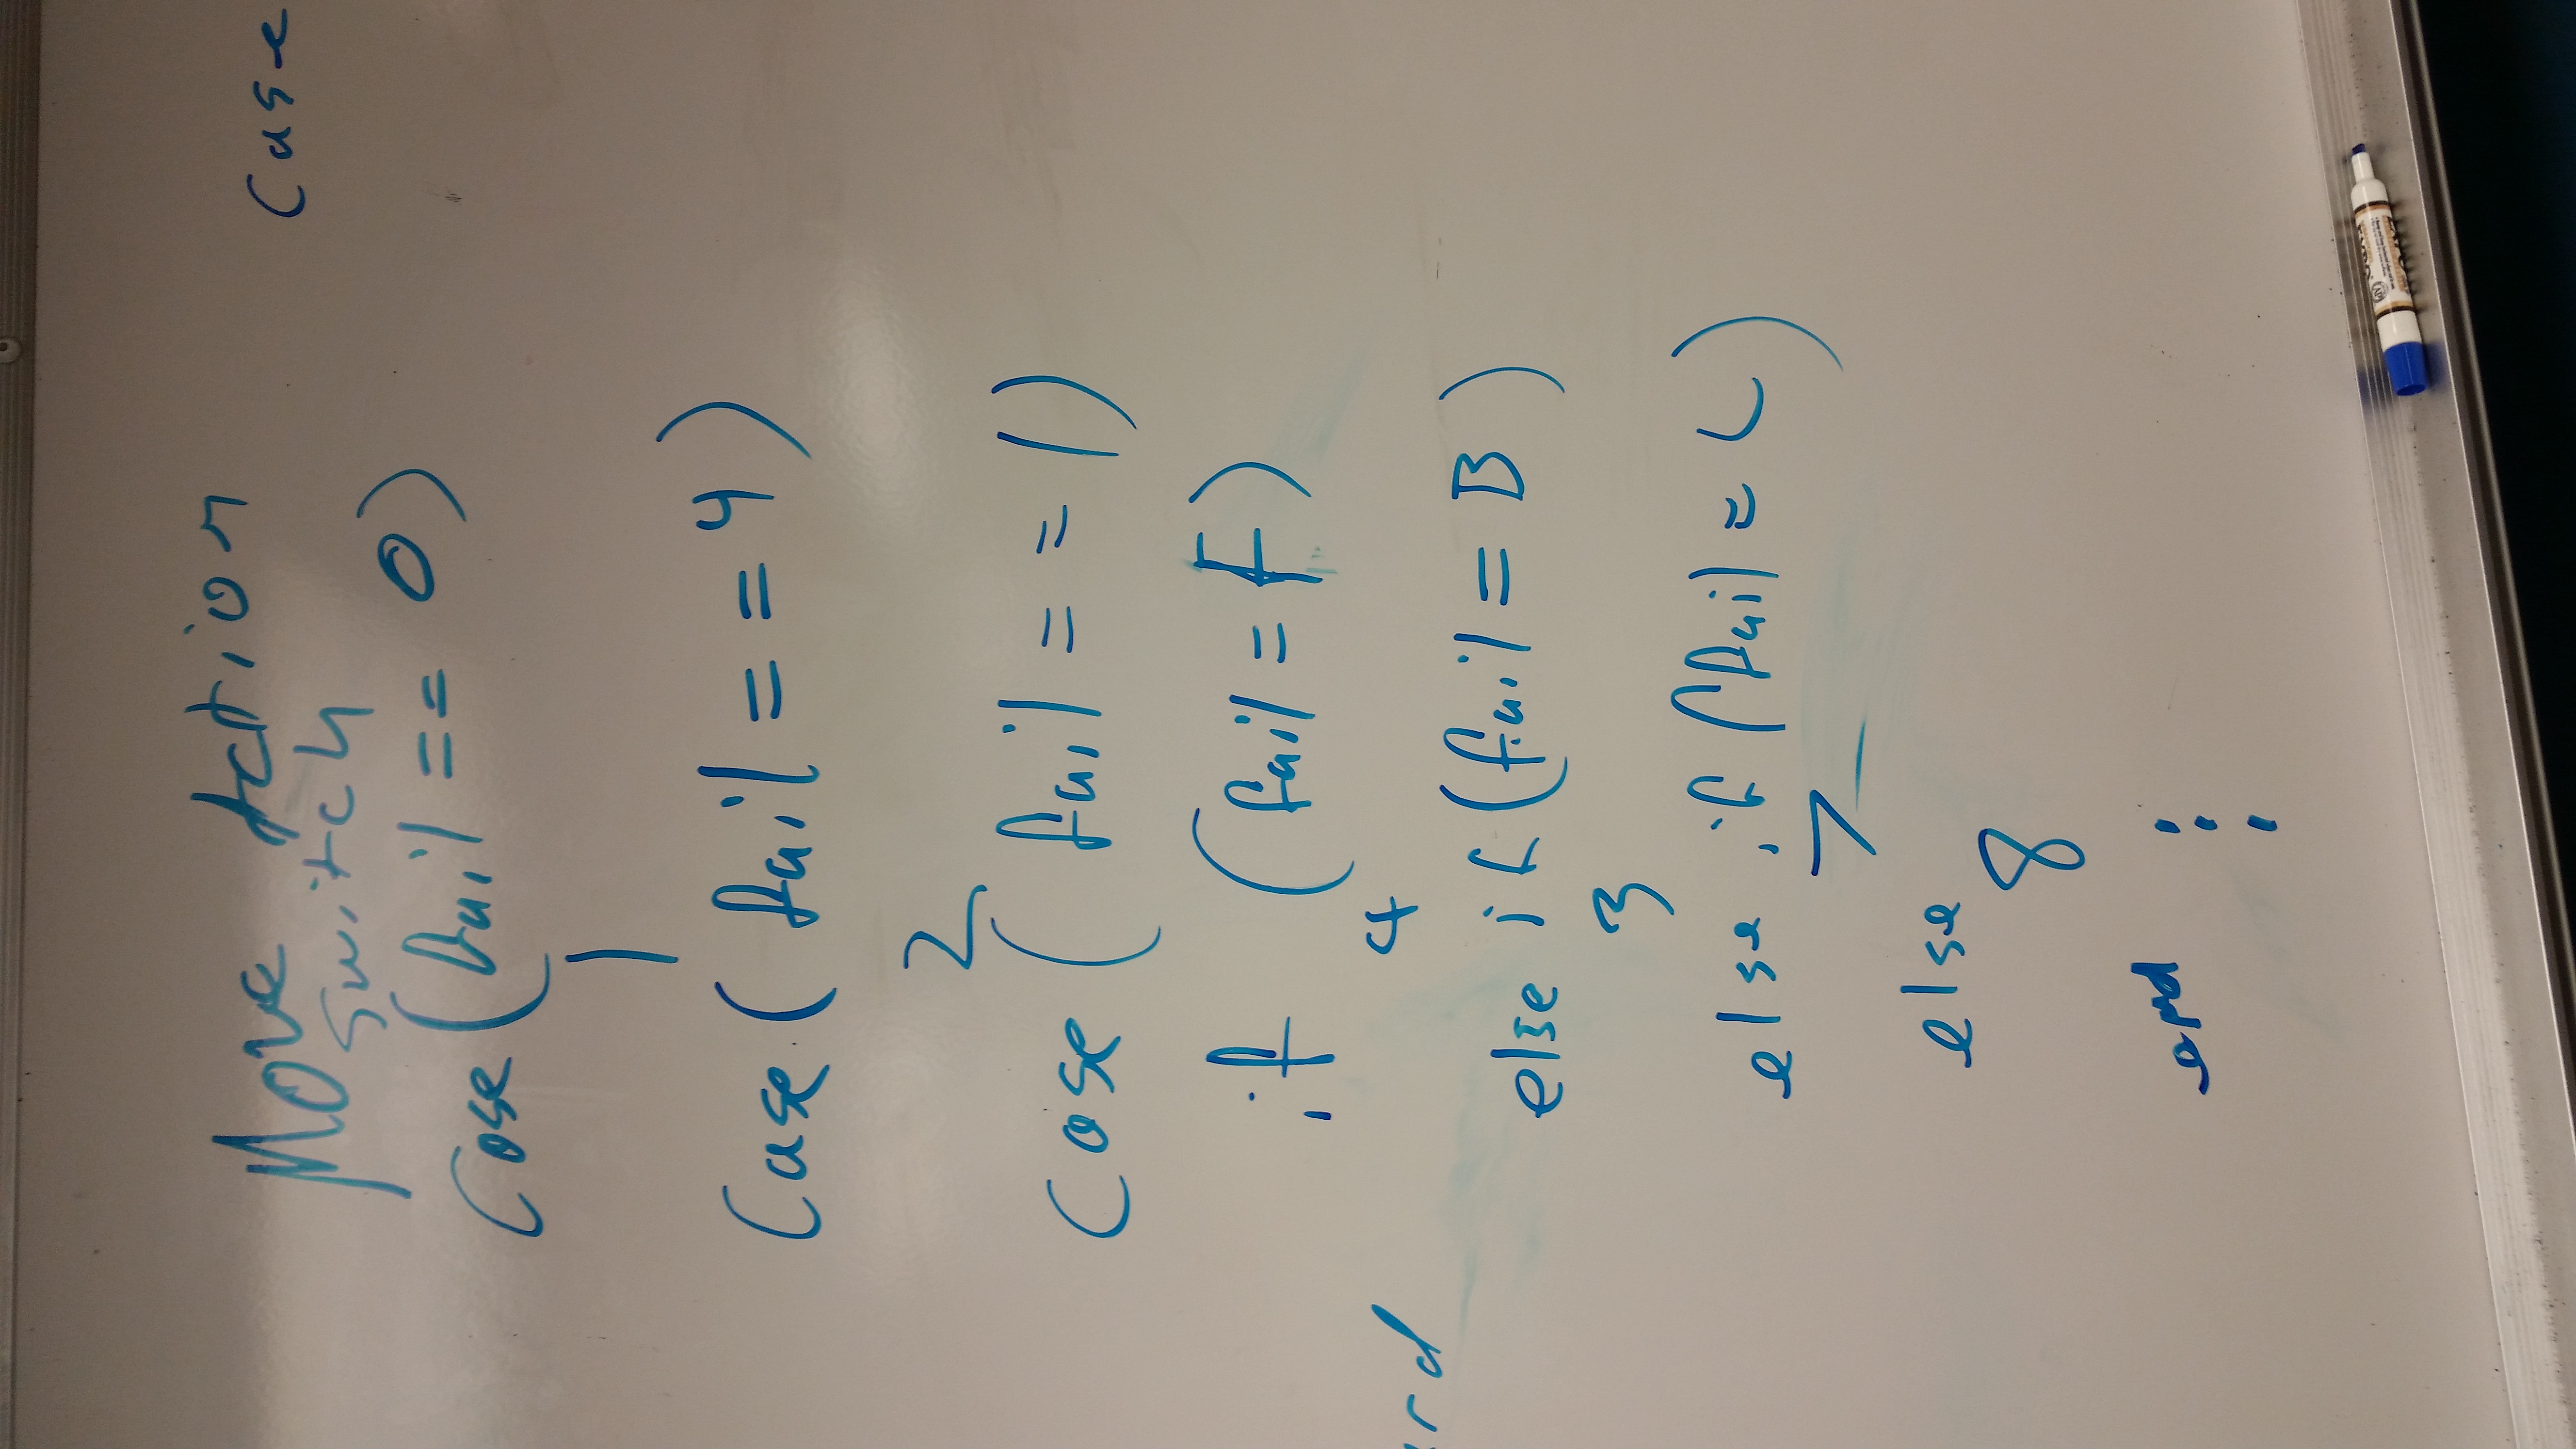 Move Action
switch
Case
Case (fail == 0)
1
Case (fail == 4)
2
Case (fail == 1)
if (fail = F)
4
rd
else if (fail = B)
3
else if (fail = L)
7
else
8
end
EXPO